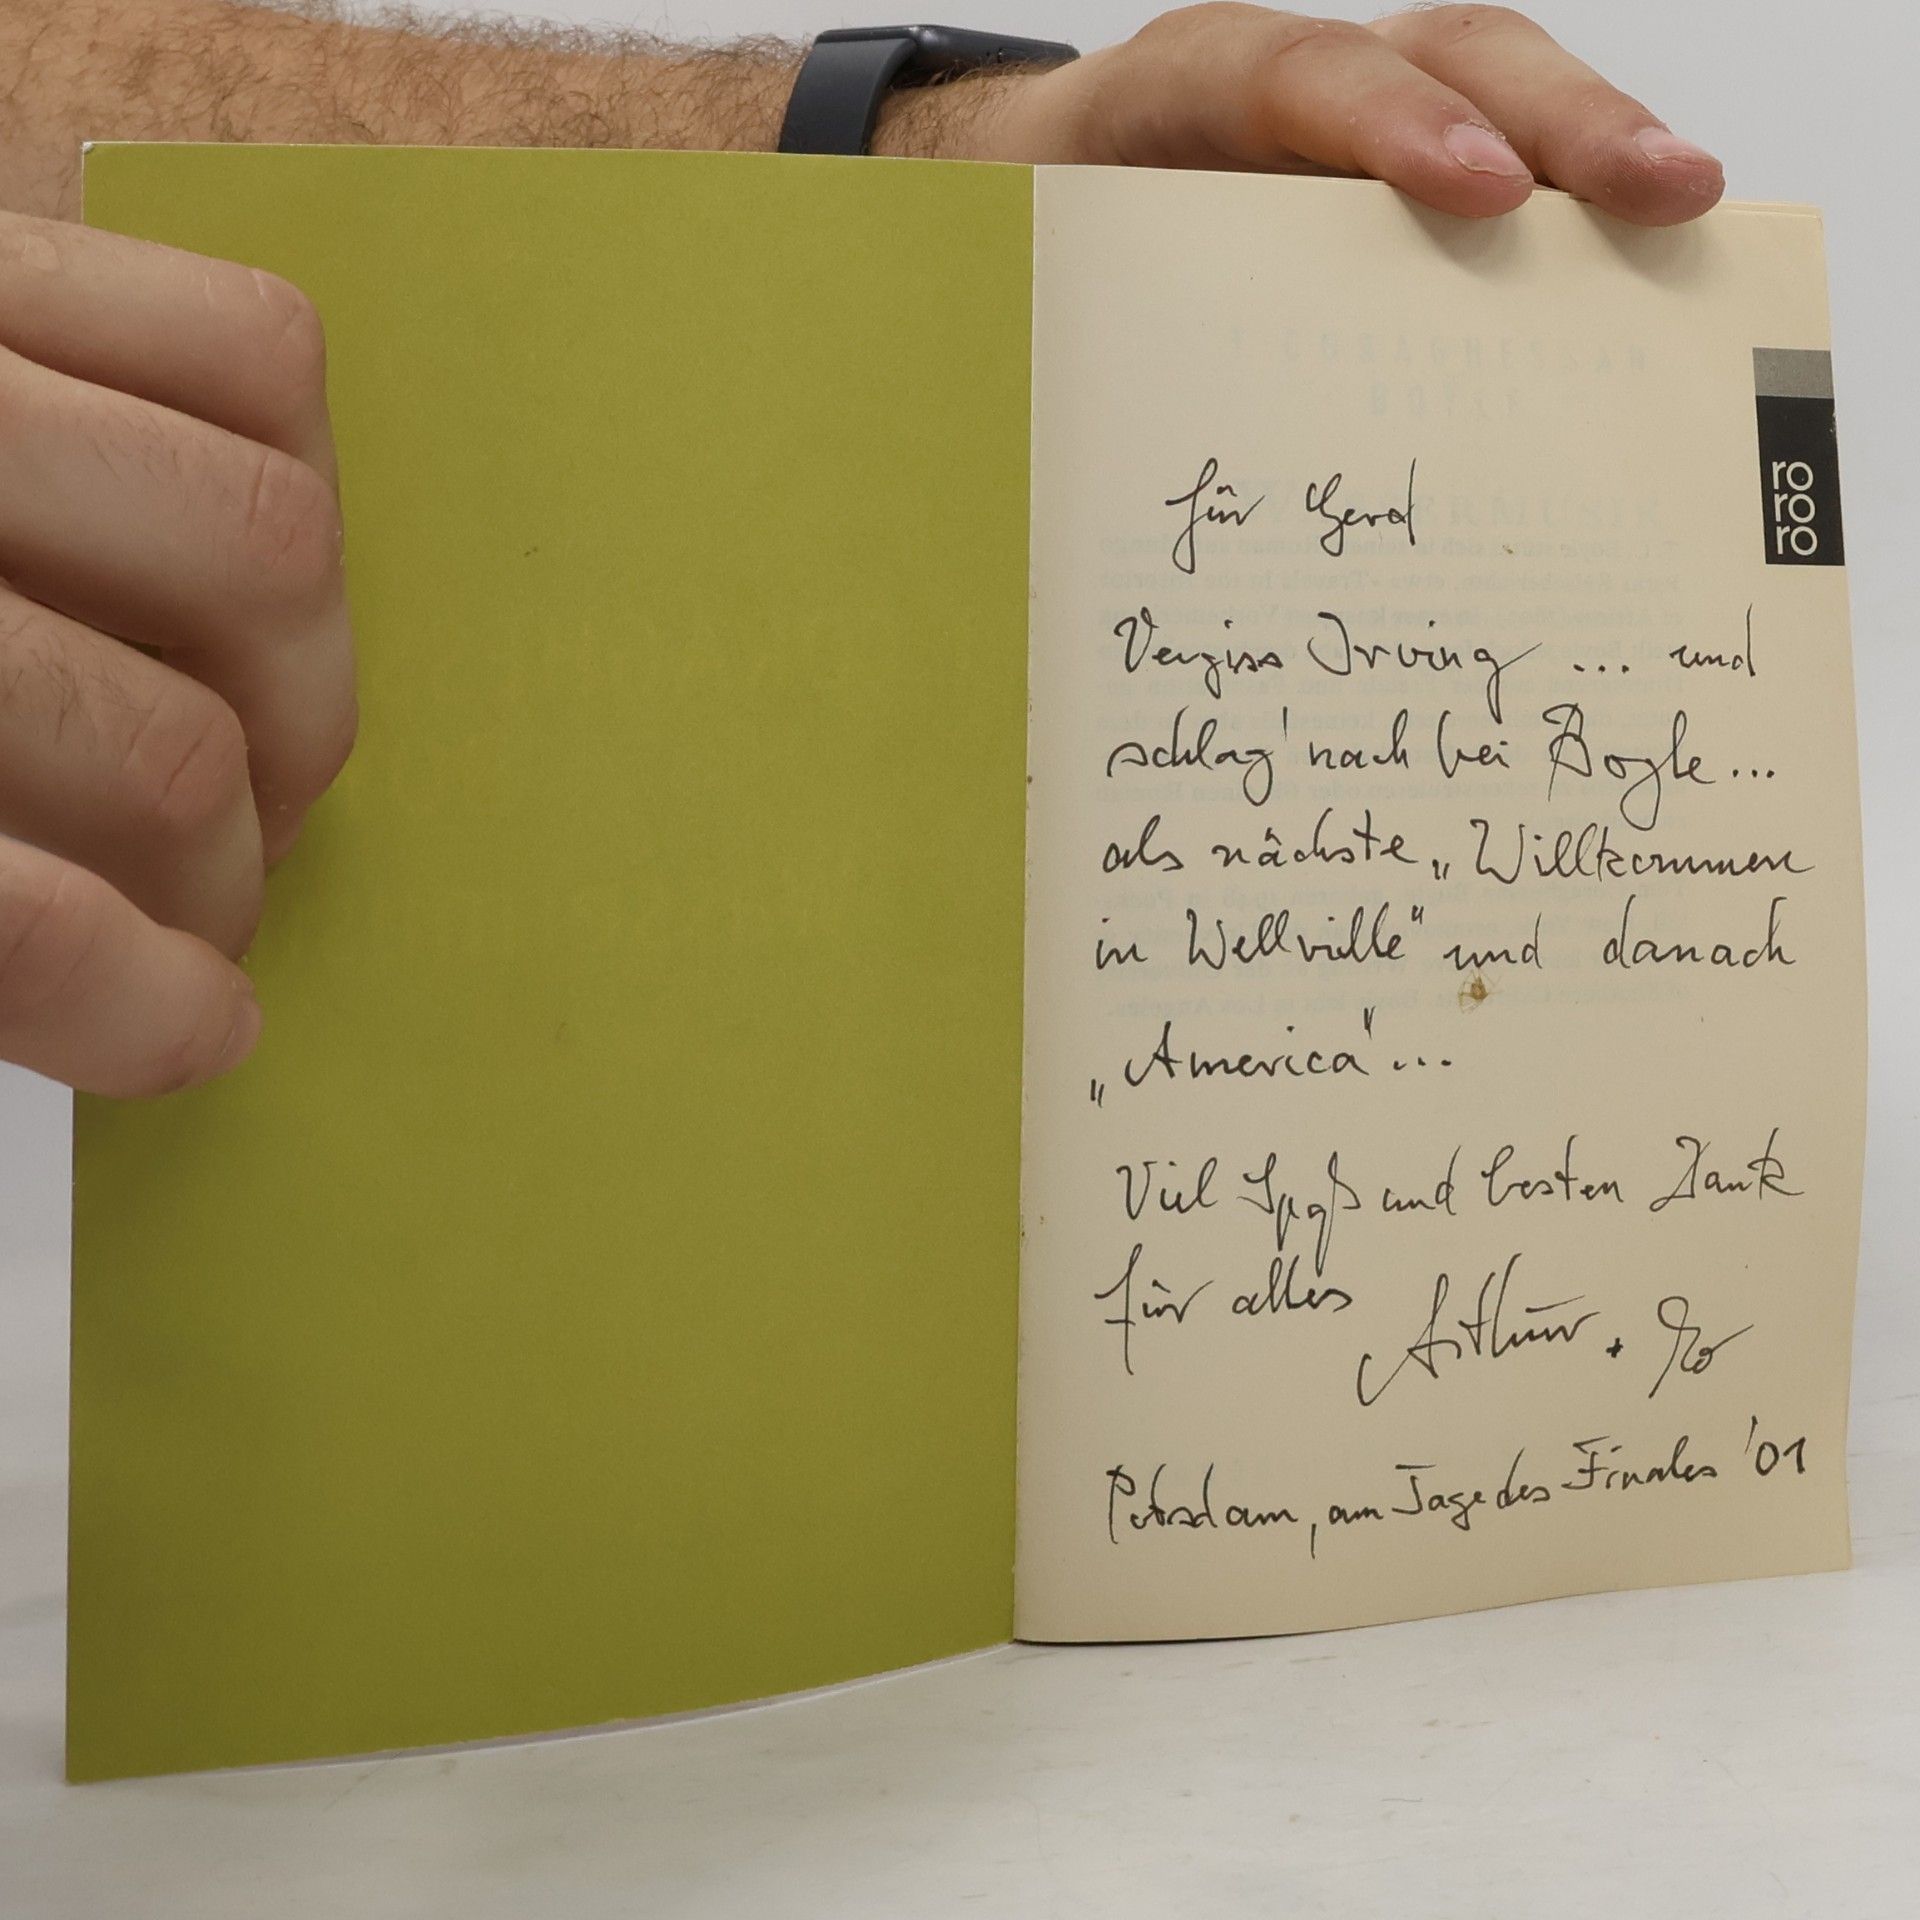 für Gerd
Vergiss Irving ... und
schlag' nach bei Boyle ...
als nächste „Willkommen
in Wellville“ und danach
„America“ ...
Viel Spaß und besten Dank
für alles
Arthur +
Potsdam, am Tage des Finales '01
ro
ro
ro